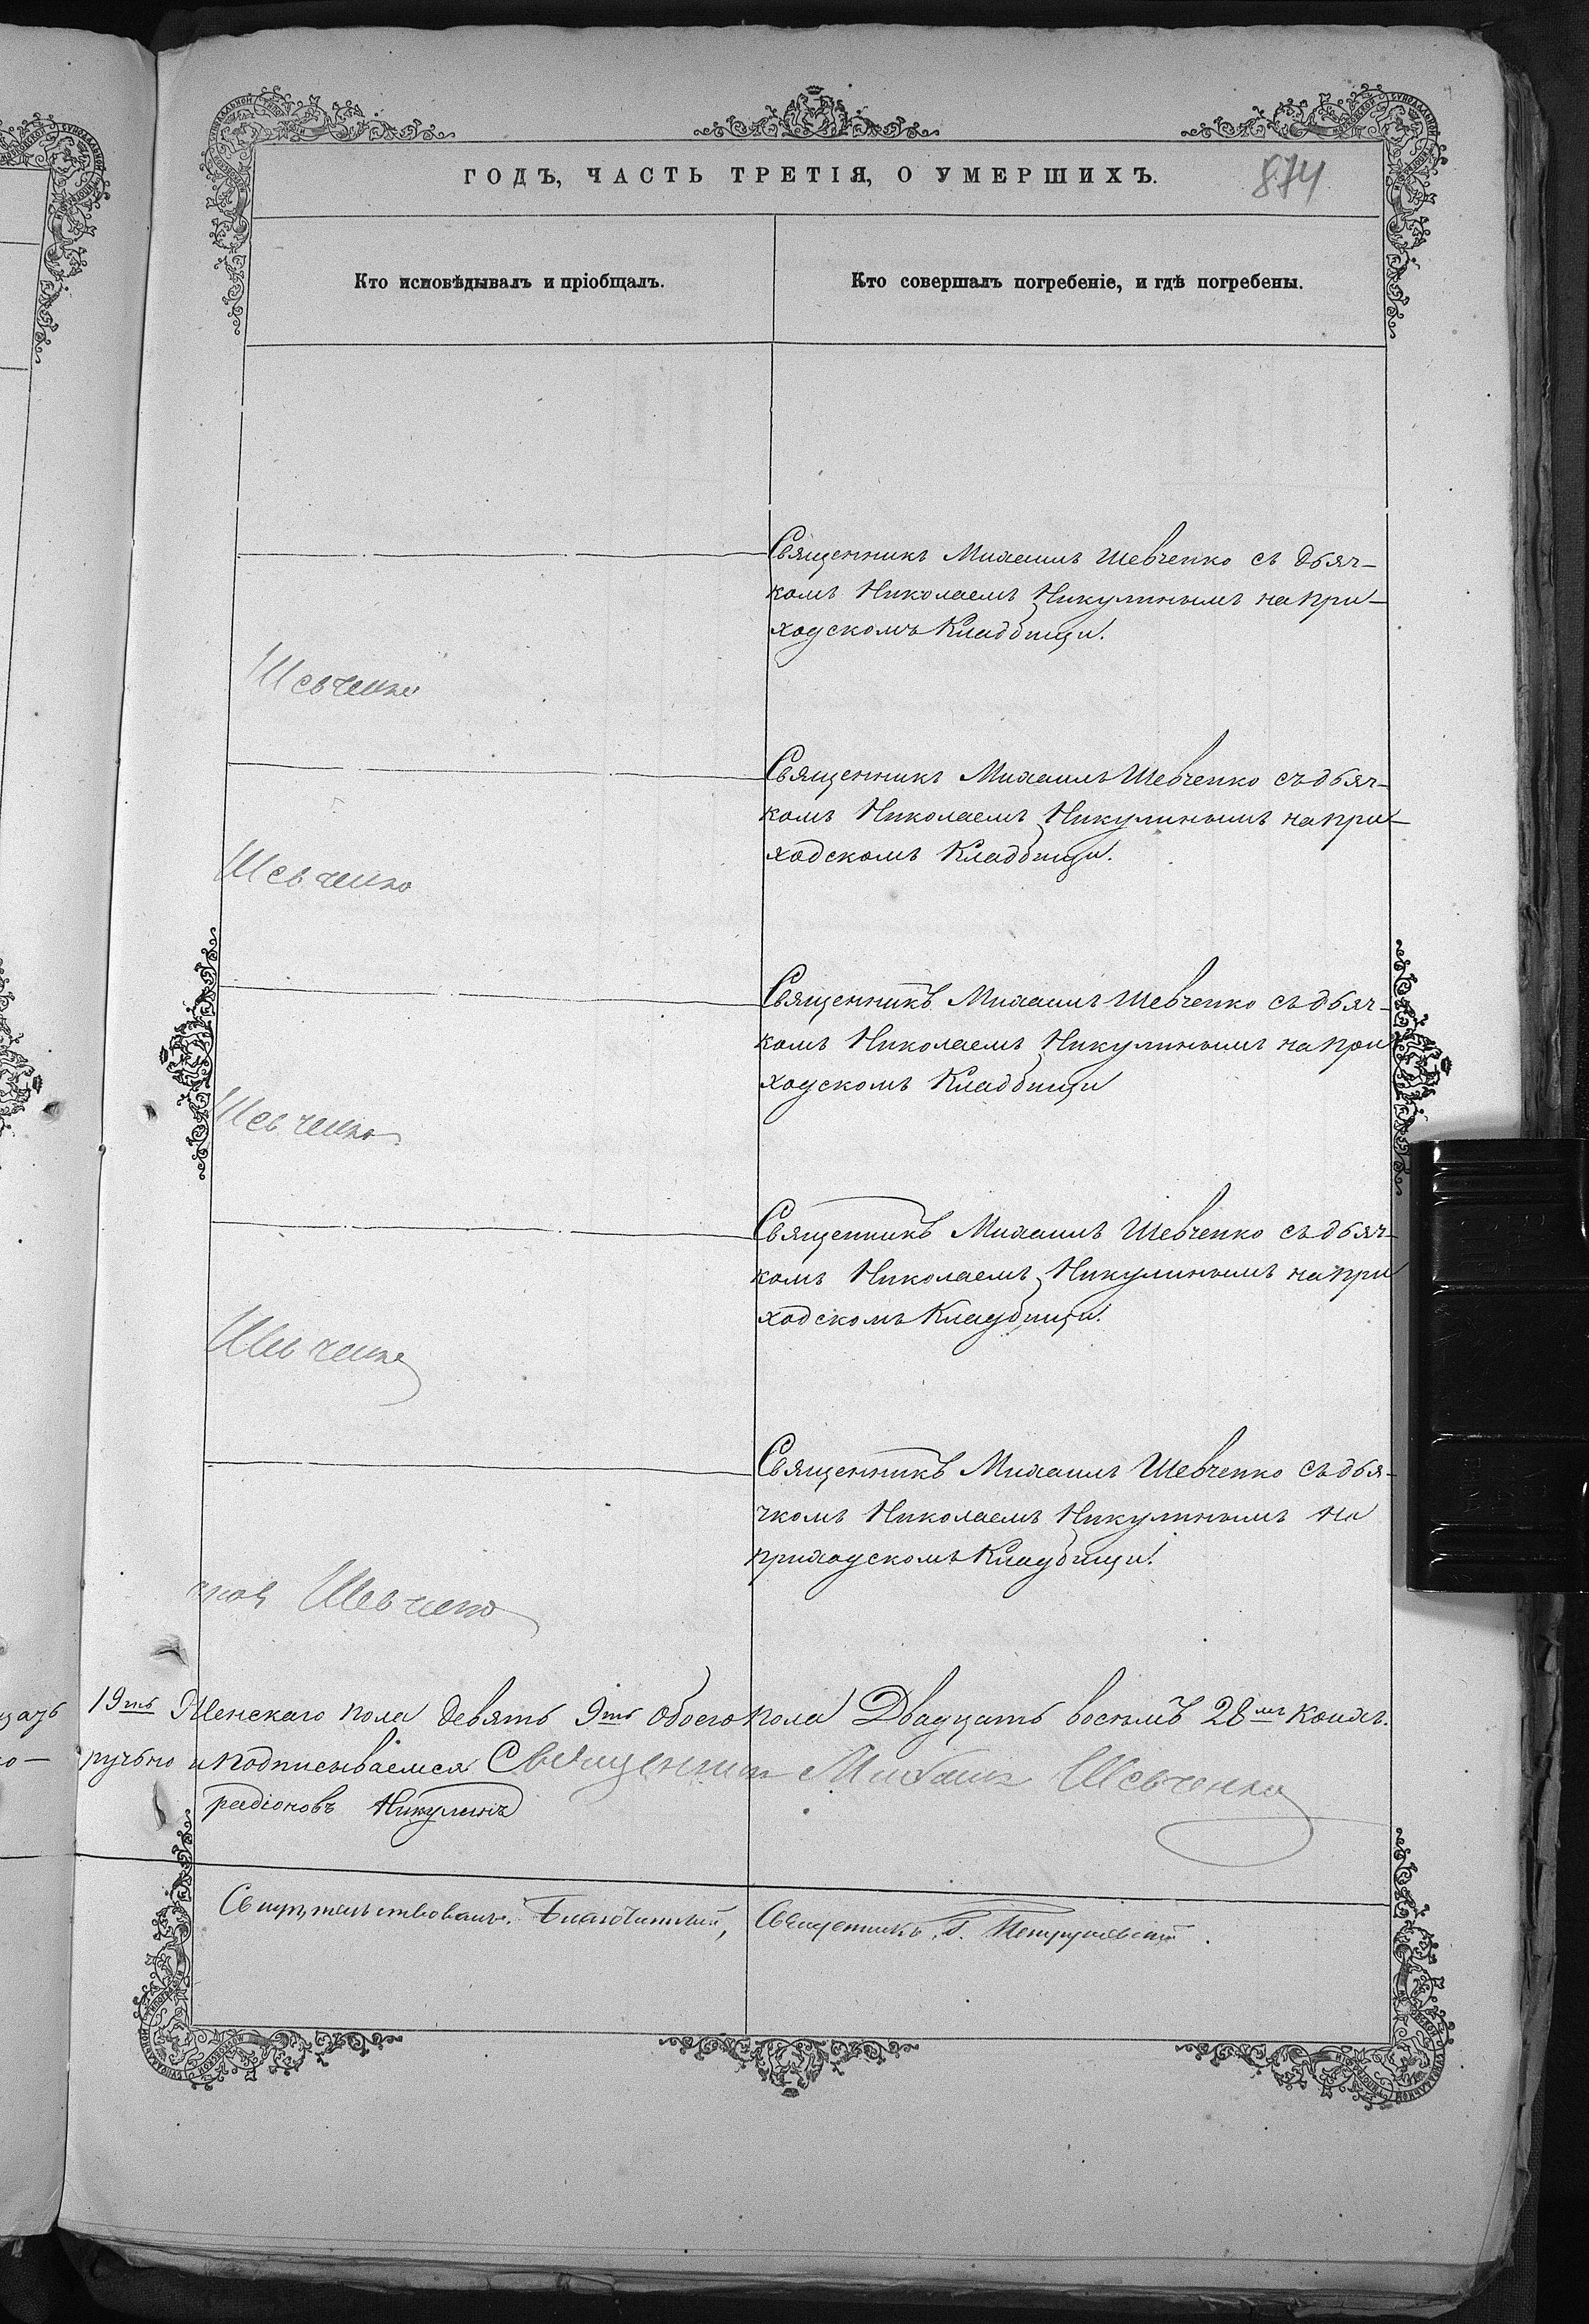 ГОДЪ, ЧАСТЬ ТРЕТІЯ, О УМЕРШИХЪ.
874
Кто исповѣдывалъ и пріобщалъ.
Кто совершалъ погребеніе, и гдѣ погребены.
Священникъ Михаилъ Шевченко съ дьяч-
комъ Николаемъ Никулинымъ на при-
ходскомъ Кладбищи.
Шевченко
Священникъ Михаилъ Шевченко съ дьяч-
комъ Николаемъ Никулинымъ на при-
ходскомъ Кладбищи.
Шевченко
Священникъ Михаилъ Шевченко съ дьяч-
комъ Николаемъ Никулинымъ на при
ходскомъ Кладбищи
Шевченко
Священникъ Михаилъ Шевченко съ дьяч-
комъ Николаемъ Никулинымъ на при
ходскомъ Кладбищи.
Шевченко
Священникъ Михаилъ Шевченко съ дья-
чкомъ Николаемъ Никулинымъ на
приходскомъ Кладбищи.
Шевченко
19ть Женскаго пола девять 9ть обоего пола Двадцать восьмъ 28мъ
ручьно и подписываемся Священникъ Михаилъ Шевченко
Никулинъ
Свидѣтельствовалъ. Благочинный, Священникъ